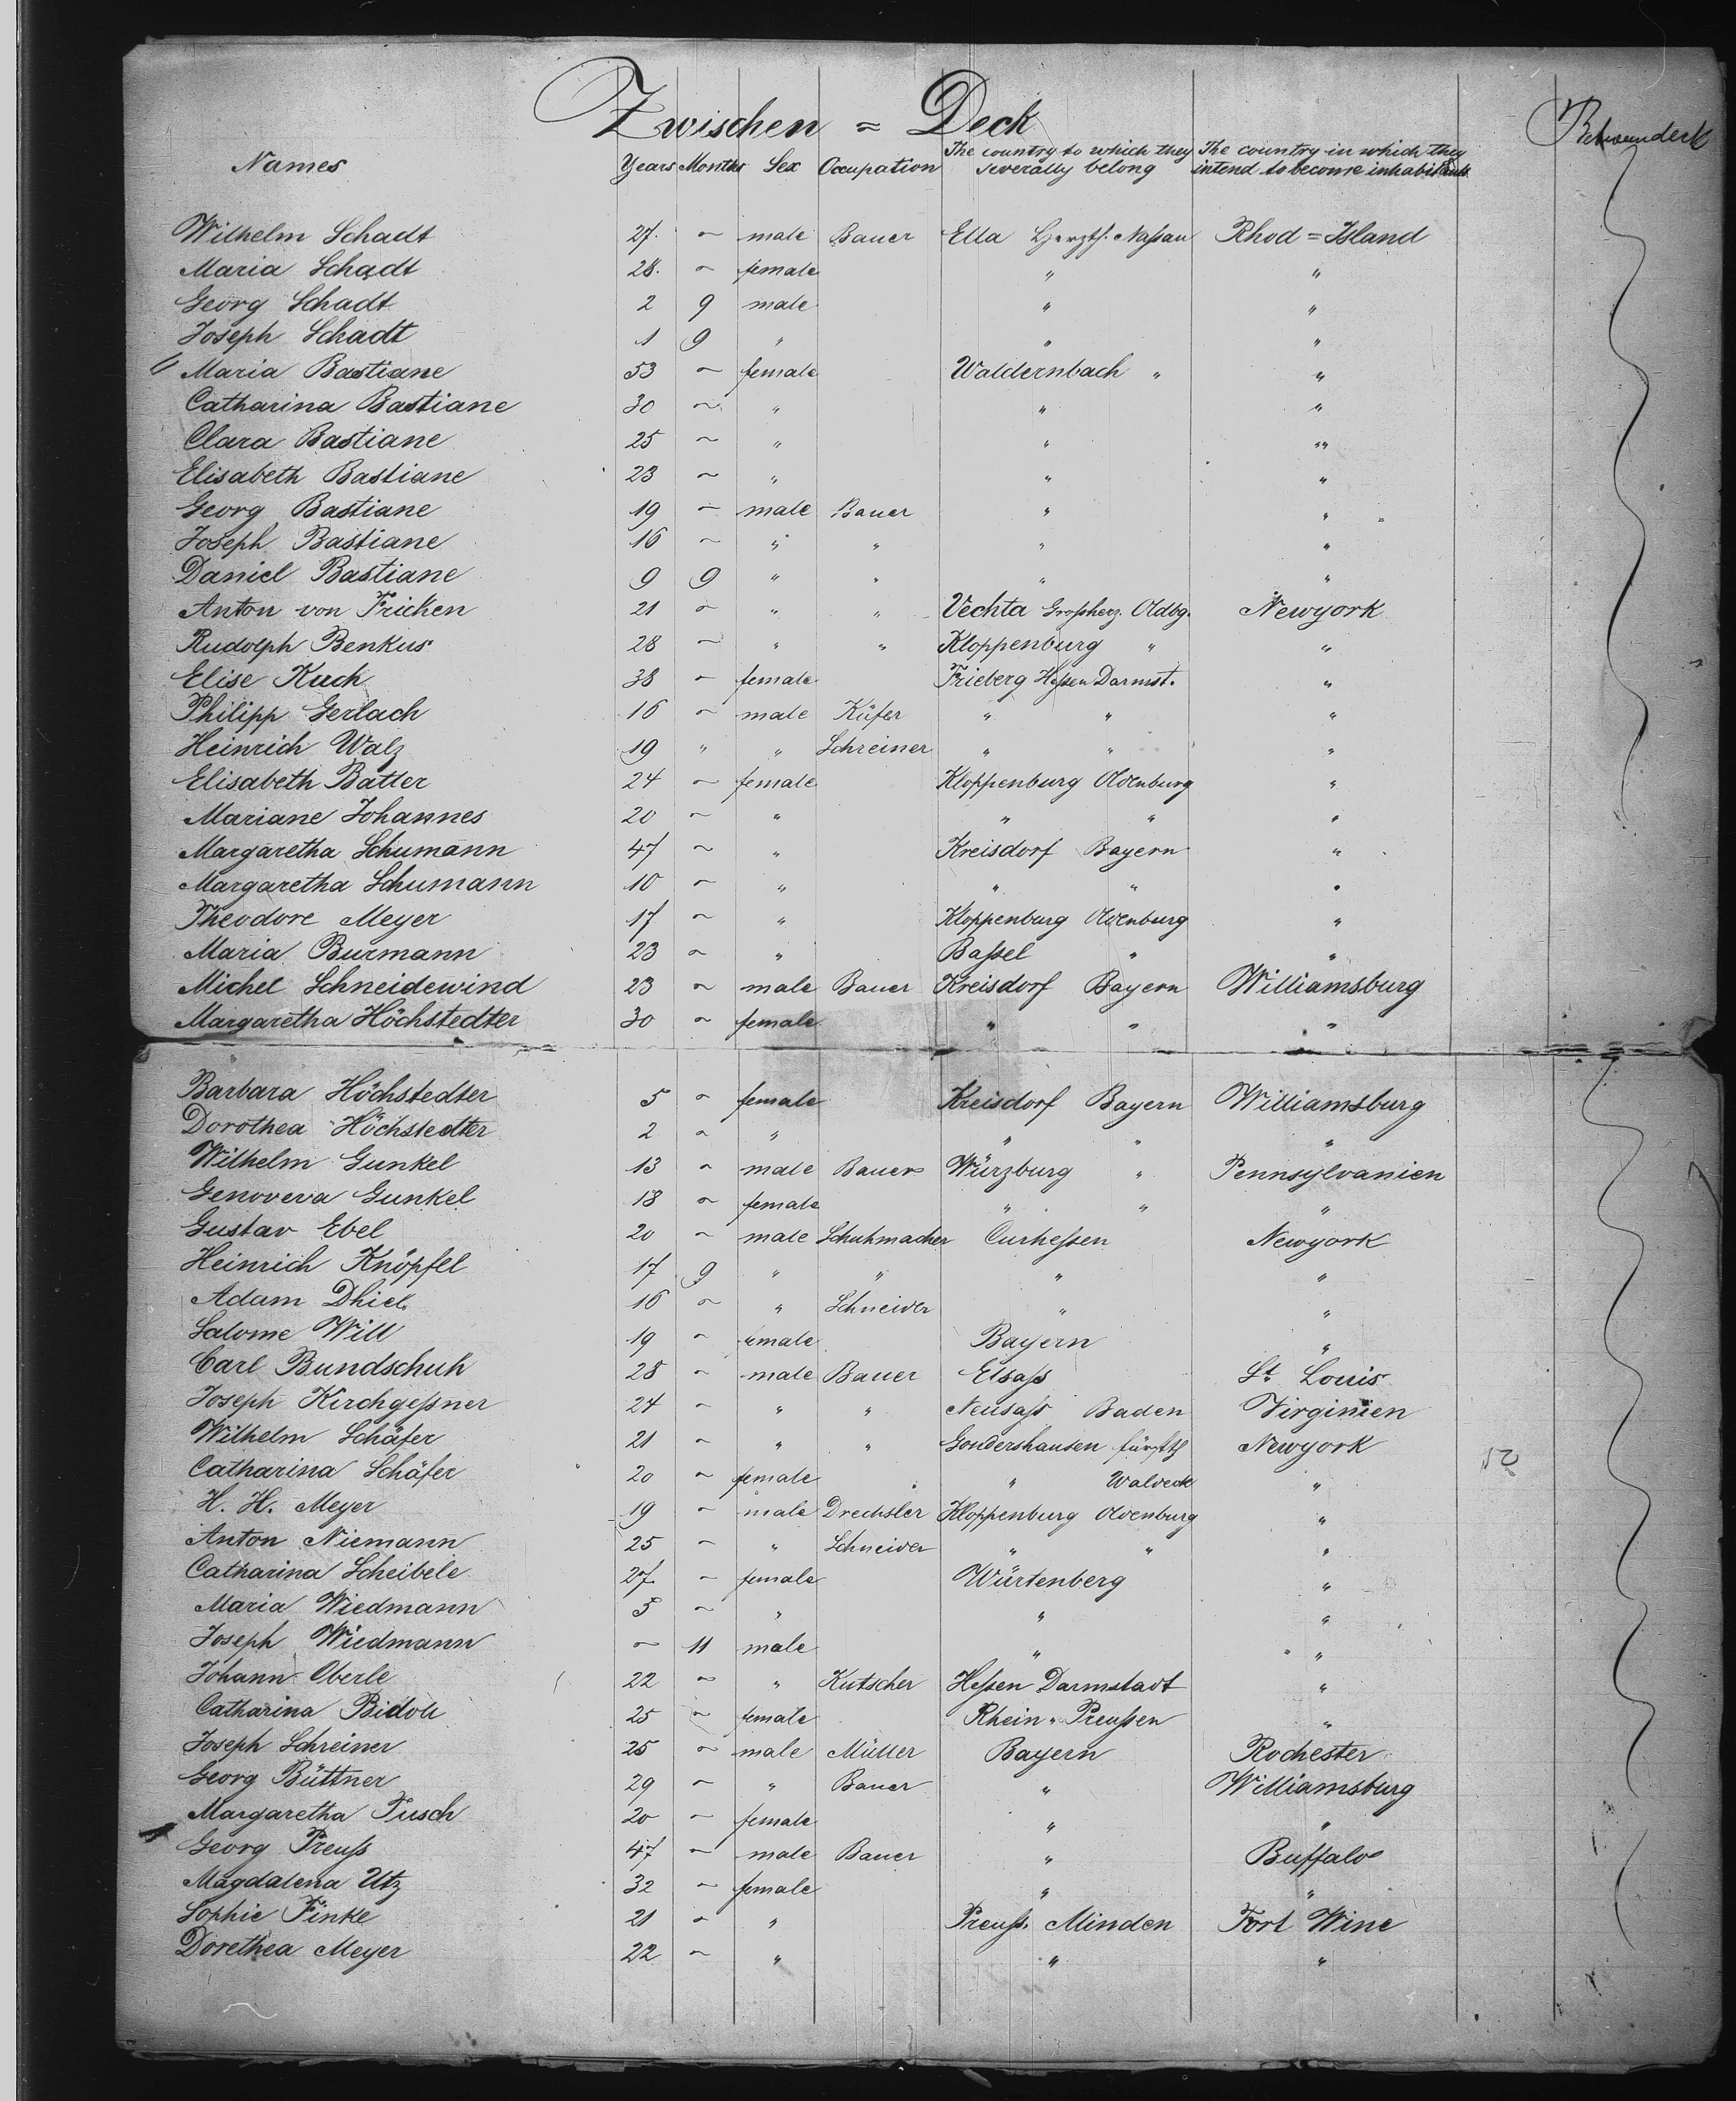 Zwischen = Deck
Betweendeck
Names Years Months Sex Occupation The country to which they severally belong The country in which they intend to become inhabitants
Wilhelm Schadt 27. ~ male Bauer Ella Herzth. Naßau Rhod = Island
Maria Schadt 28. ~ female " "
Georg Schadt 2 9 male " "
Joseph Schadt 1 9 " " "
Maria Bastiane 53 ~ female Waldernbach " "
Catharina Bastiane 30 ~ " " "
Clara Bastiane 25 ~ " " "
Elisabeth Bastiane 23 ~ " " "
Georg Bastiane 19 ~ male Bauer " "
Joseph Bastiane 16 ~ " " " "
Daniel Bastiane 9 9 " " " "
Anton von Fricken 21 ~ " " Vechta Großherz. Oldbg. Newyork
Rudolph Benkus 28 ~ " " Kloppenburg " "
Elise Kuch 38 ~ female Frieberg Heßen Darmst. "
Philipp Gerlach 16 ~ male Küfer " " "
Heinrich Walz 19 " " Schreiner " " "
Elisabeth Batter 24 ~ female Kloppenburg Oldenburg "
Mariane Johannes 20 ~ " " " "
Margaretha Schumann 47 ~ " Kreisdorf Bayern "
Margaretha Schumann 10 ~ " " " "
Theodore Meyer 17 ~ " Kloppenburg Oldenburg "
Maria Burmann 23 ~ " Baßel " "
Michel Schneidewind 23 ~ male Bauer Kreisdorf Bayern Williamsburg
Margaretha Höchstedter 30 ~ female " " "
Barbara Höchstedter 5 ~ female Kreisdorf Bayern Williamsburg
Dorothea Höchstedter 2 ~ " " " "
Wilhelm Gunkel 13 ~ male Bauer Würzburg " Pennsylvanien
Genoveva Gunkel 18 ~ female " " "
Gustav Ebel 20 ~ male Schuhmacher Curheßen Newyork
Heinrich Knöpfel 17 9 " " " "
Adam Dhiel 16 ~ " Schneider " "
Salome Will 19 ~ female Bayern "
Carl Bundschuh 28 ~ male Bauer Elsaß St. Louis
Joseph Kirchgeßner 24 ~ " " Neusaß Baden Virginien
Wilhelm Schäfer 21 ~ " " Gondershausen fürstth Newyork
Catharina Schäfer 20 ~ female " Waldeck "
H. H. Meyer 19 ~ male Drechsler Kloppenburg Oldenburg "
Anton Niemann 25 ~ " Schneider " " "
Catharina Scheibele 27. ~ female Würtenberg "
Maria Wiedmann 5 ~ " " "
Joseph Wiedmann ~ 11 male " "
Johann Oberle 22 ~ " Kutscher Heßen Darmstadt "
Catharina Bidoll 25 ~ female Rhein-Preußen "
Joseph Schreiner 25 ~ male Müller Bayern Rochester
Georg Büttner 29 ~ " Bauer " Williamsburg
Margaretha Tusch 20 ~ female " "
Georg Preuß 47 ~ male Bauer " Buffalo
Magdalena Utz 32 ~ female " "
Sophie Finke 21 ~ " Preuß. Minden Fort Wine
Dorethea Meyer 22 ~ " " "